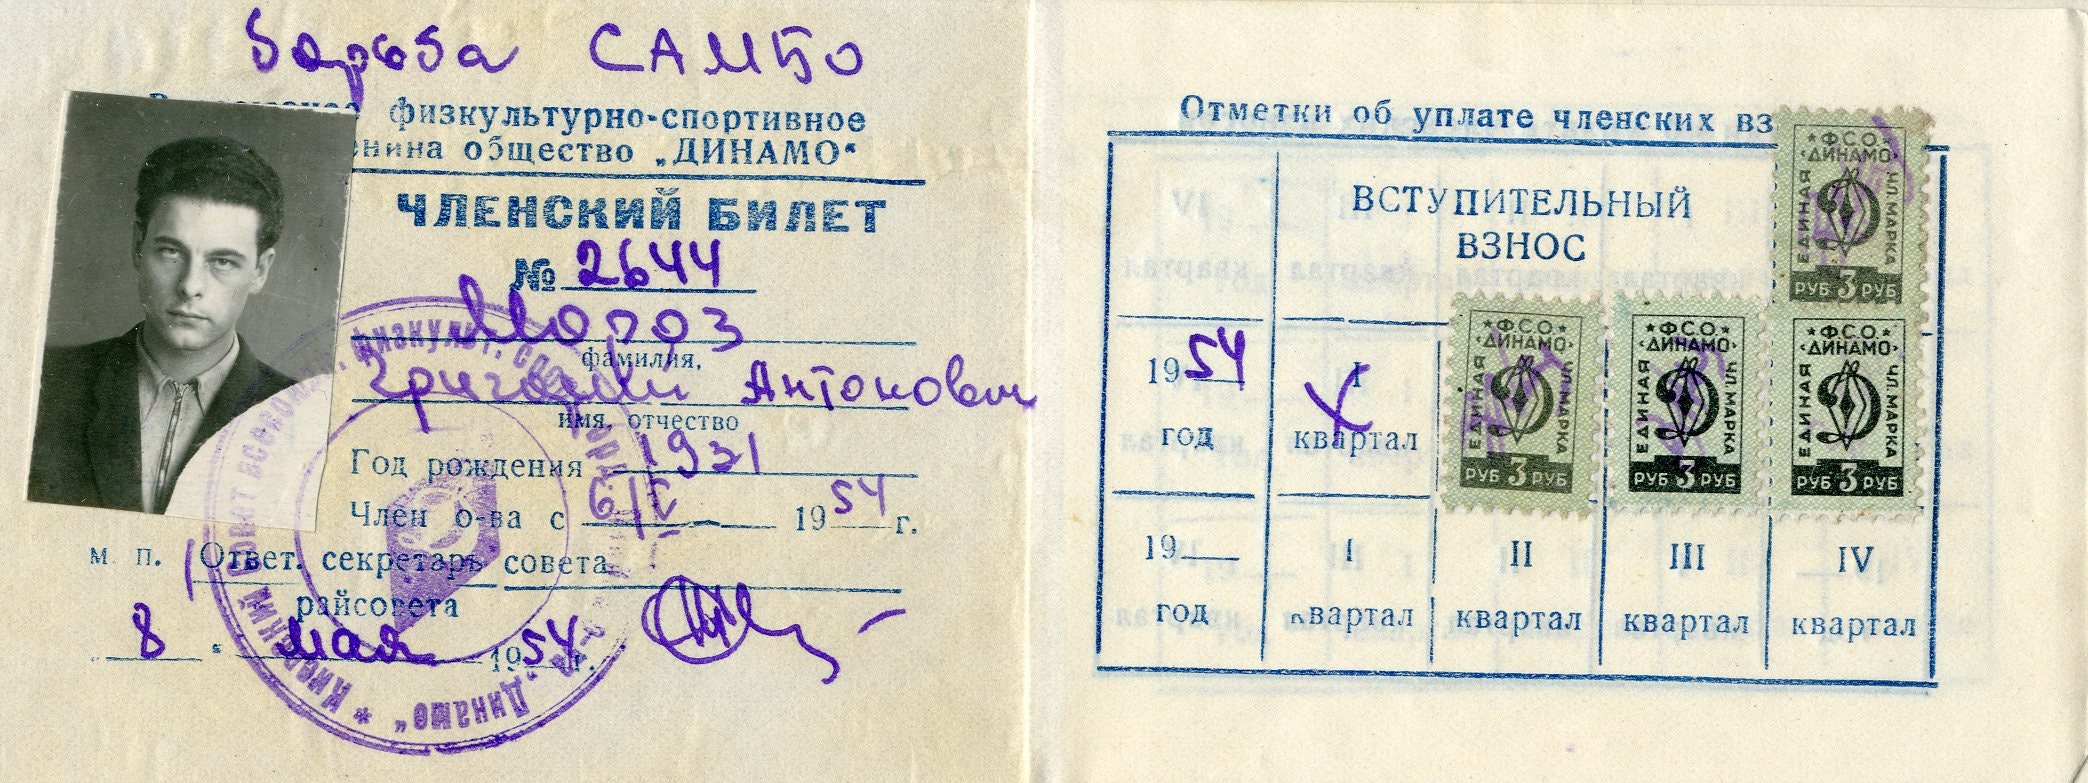 борьба САМБО
физкультурно-спортивное
общество „ДИНАМО“
ЧЛЕНСКИЙ БИЛЕТ
№ 2644
Мороз
фамилия,
Григорий Антонович
имя, отчество
Год рождения 1931
Член о-ва с 6/V 1954 г.
м. п. Ответ. секретарь совета
райсовета
„ 8 “ мая 1954 г.
Киевский совет
"Динамо"
Отметки об уплате членских вз
ВСТУПИТЕЛЬНЫЙ
ВЗНОС
Ф.С.О.
ДИНАМО
ЕДИНАЯ
ЧЛ.МАРКА
РУБ 3 РУБ
1954
год
I
квартал
Ф.С.О.
ДИНАМО
ЕДИНАЯ
ЧЛ.МАРКА
РУБ 3 РУБ
Ф.С.О.
ДИНАМО
ЕДИНАЯ
ЧЛ.МАРКА
РУБ 3 РУБ
Ф.С.О.
ДИНАМО
ЕДИНАЯ
ЧЛ.МАРКА
РУБ 3 РУБ
19__ I II III IV
год квартал квартал квартал квартал